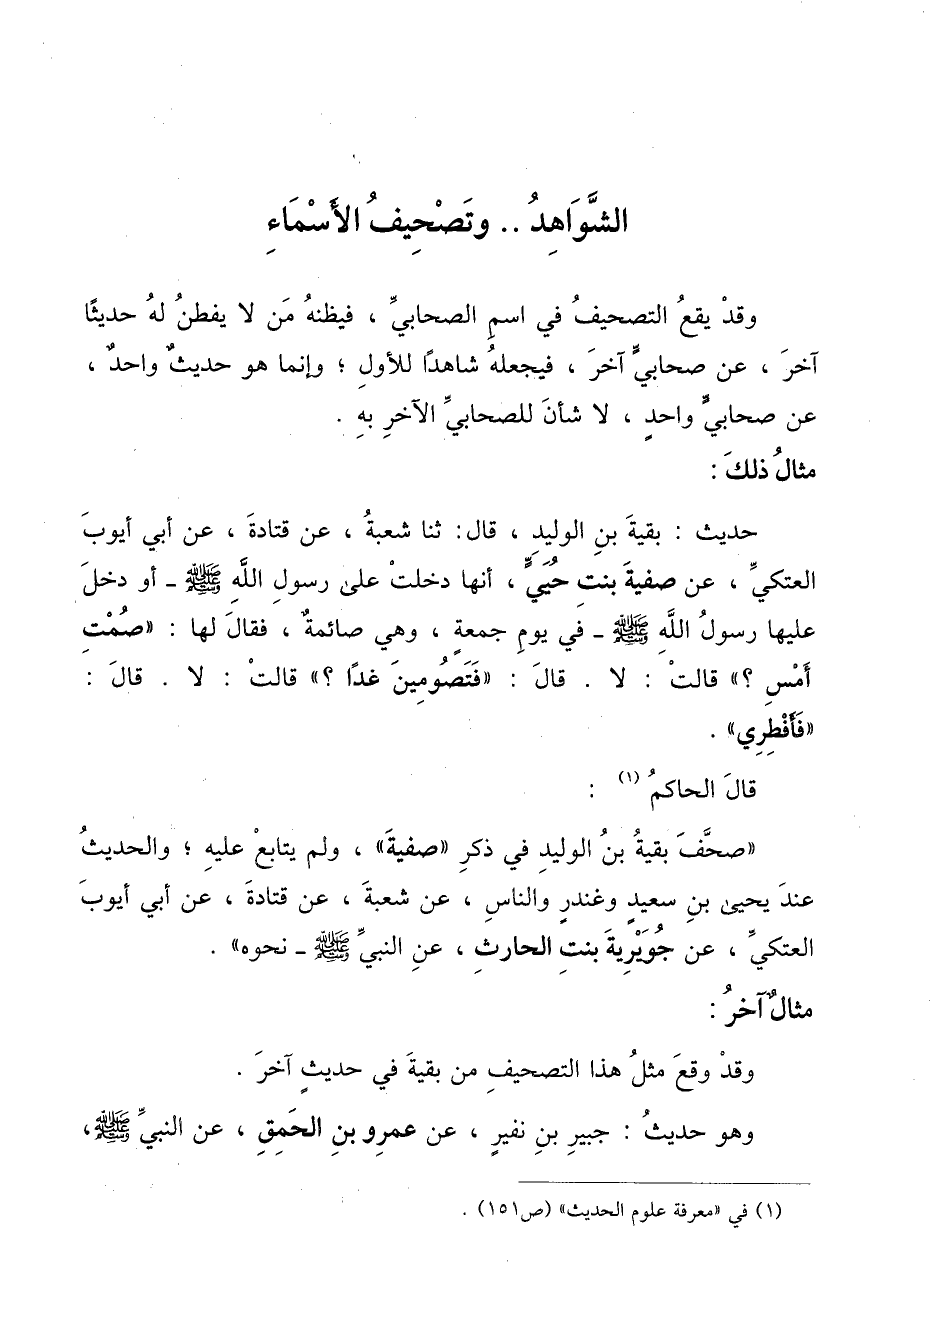 الشَّوَاهِدُ .. وتَصْحِيفُ الأَسْمَاءِ
وقدْ يقعُ التصحيفُ في اسمِ الصحابيِّ ، فيظنهُ مَن لا يفطنُ لهُ حديثًا
آخرَ ، عن صحابيٍّ آخرَ ، فيجعلهُ شاهدًا للأولِ ؛ وإنما هو حديثٌ واحدٌ ،
عن صحابيٍّ واحدٍ ، لا شأنَ للصحابيِّ الآخرِ بهِ .
مثالُ ذلكَ :
حديث : بقيةَ بنِ الوليدِ ، قال: ثنا شعبةُ ، عن قتادةَ ، عن أبي أيوبَ
العتكيِّ ، عن صفيةَ بنتِ حُيَيٍّ ، أنها دخلتْ على رسولِ اللَّهِ ﷺ ـ أو دخلَ
عليها رسولُ اللَّهِ ﷺ ـ في يومِ جمعةٍ ، وهي صائمةٌ ، فقالَ لها : «صُمْتِ
أَمْسِ ؟» قالتْ : لا . قالَ : «فَتَصُومِينَ غدًا ؟» قالتْ : لا . قالَ :
«فَأَفْطِرِي» .
قالَ الحاكمُ (١) :
«صحَّفَ بقيةُ بنُ الوليدِ في ذكرِ «صفيةَ» ، ولم يتابعْ عليهِ ؛ والحديثُ
عندَ يحيى بنِ سعيدٍ وغندرٍ والناسِ ، عن شعبةَ ، عن قتادةَ ، عن أبي أيوبَ
العتكيِّ ، عن جُوَيْرِيةَ بنتِ الحارثِ ، عنِ النبيِّ ﷺ ـ نحوه» .
مثالٌ آخرُ :
وقدْ وقعَ مثلُ هذا التصحيفِ من بقيةَ في حديثٍ آخرَ .
وهو حديثُ : جبيرِ بنِ نفيرٍ ، عن عمرِو بنِ الحَمِقِ ، عن النبيِّ ﷺ ،
(١) في «معرفة علوم الحديث» (ص١٥١) .